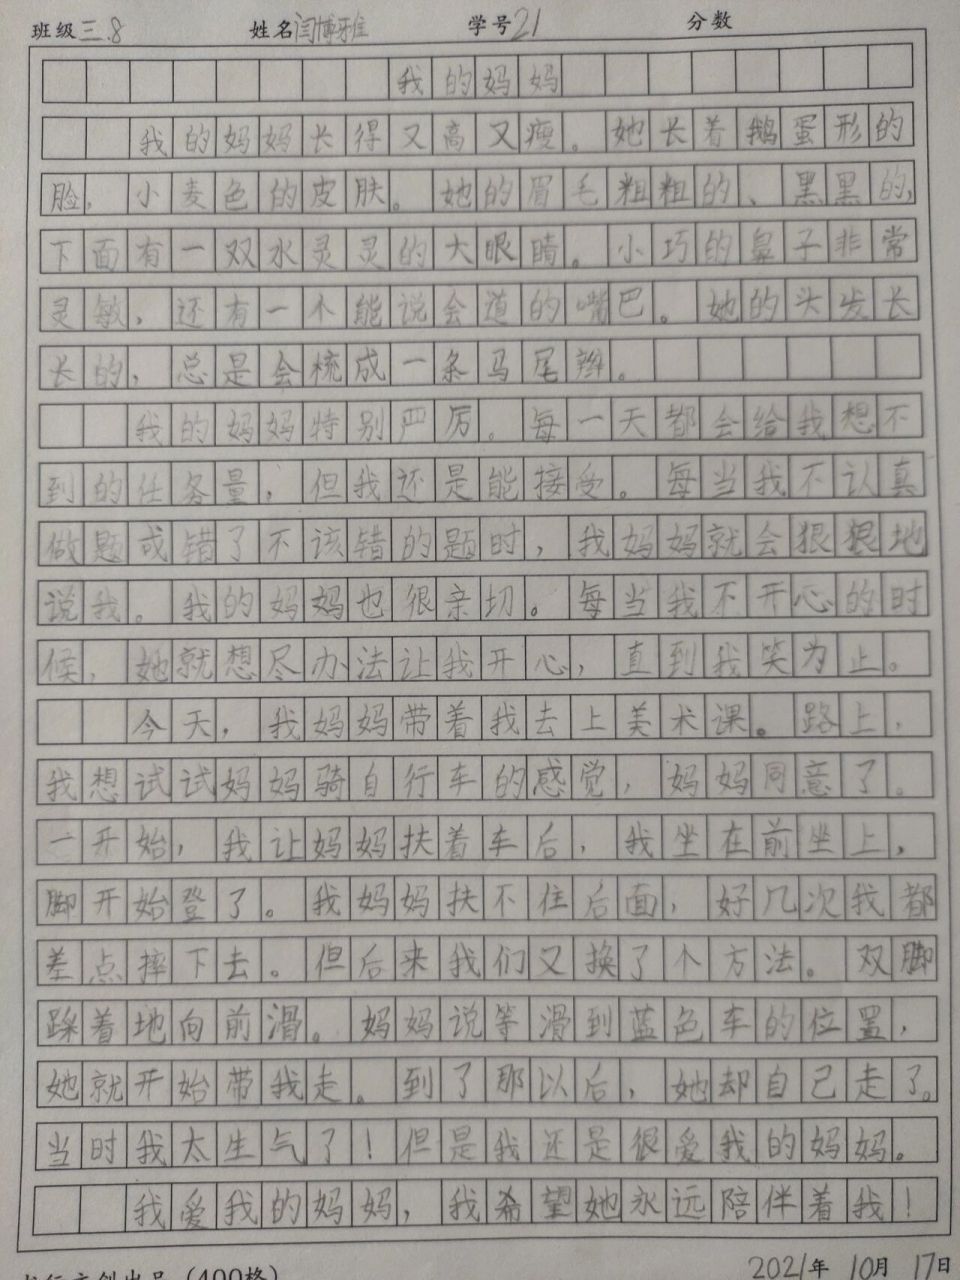 班级三.8 姓名闫博雅 学号21 分数
我的妈妈
我的妈妈长得又高又瘦。她长着鹅蛋形的
脸，小麦色的皮肤。她的眉毛粗粗的、黑黑的，
下面有一双水灵灵的大眼睛。小巧的鼻子非常
灵敏，还有一个能说会道的嘴巴。她的头发长
长的，总是会梳成一条马尾辫。
我的妈妈特别严厉。每一天都会给我想不
到的任务量，但我还是能接受。每当我不认真
做题或错了不该错的题时，我妈妈就会狠狠地
说我。我的妈妈也很亲切。每当我不开心的时
候，她就想尽办法让我开心，直到我笑为止。
今天，我妈妈带着我去上美术课。路上，
我想试试妈妈骑自行车的感觉，妈妈同意了。
一开始，我让妈妈扶着车后，我坐在前坐上，
脚开始登了。我妈妈扶不住后面，好几次我都
差点摔下去。但后来我们又换了个方法。双脚
踩着地向前滑。妈妈说等滑到蓝色车的位置，
她就开始带我走。到了那以后，她却自己走了。
当时我太生气了！但是我还是很爱我的妈妈。
我爱我的妈妈，我希望她永远陪伴着我！
2021年 10月 17日